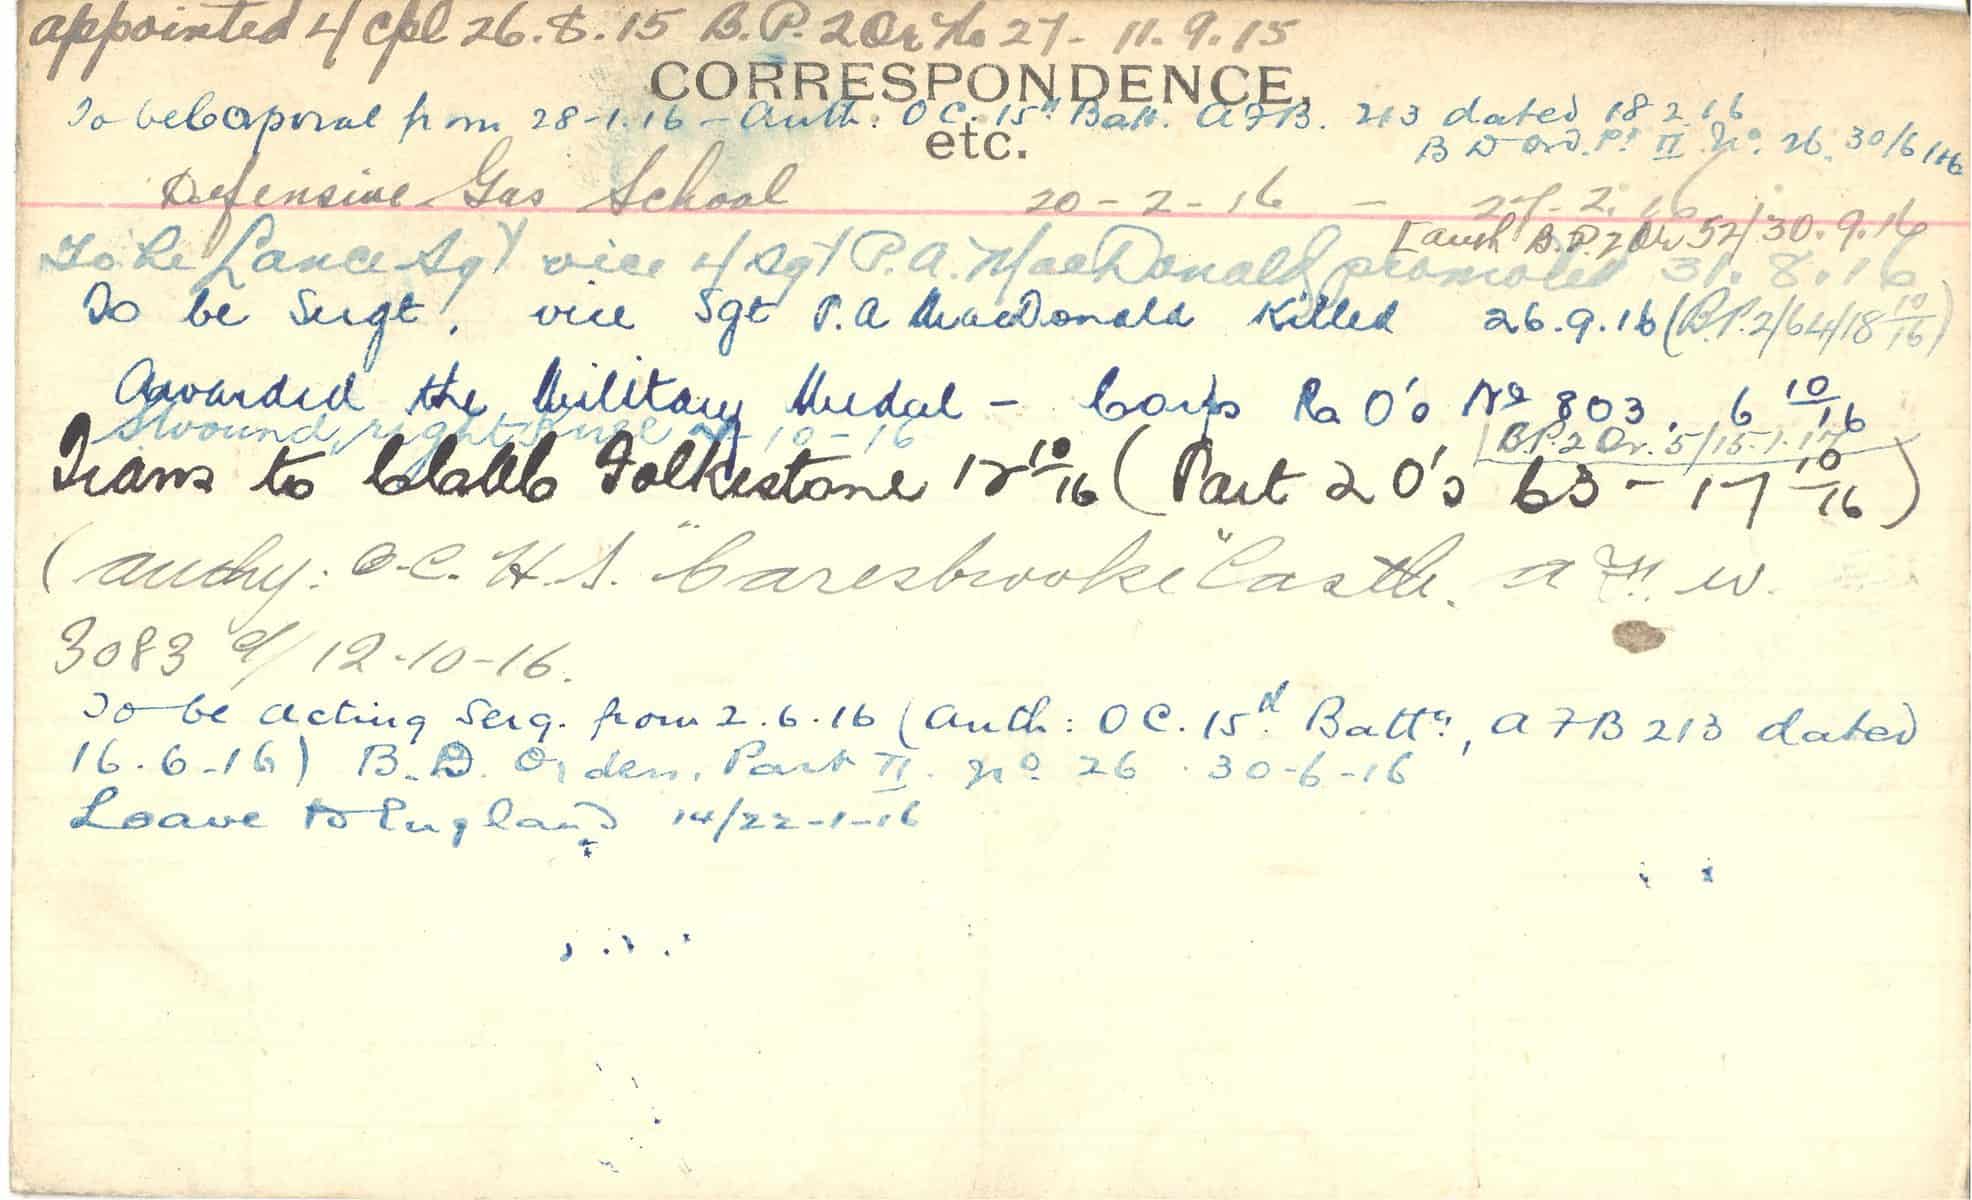 appointed L/Cpl 26.8.15 B.P. 2 Or No 27 - 11.9.15
CORRESPONDENCE,
To be Corporal from 28-1.16 - Auth: OC. 15th Batt. AFB. 213 dated 18 2.16
etc.
B D Ord. Pt II No. 26. 30/6/16
Defensive Gas School 20-2-16 - 27-2.16
[auth B.P. 2 Or 52/30.9.16
To be Lance Sgt vice L/Sgt P.A. MacDonald promoted 31.8.16
To be Sergt. vice Sgt P.A MacDonald Killed 26.9.16 (B.P.2/64/18 10/16)
Awarded the Military Medal - Corps Ra O's No 803. 6 10/16
S wound, right knee -10-16
[B.P. 2 Or. 5/15.1.17
Trans to CCAC Folkestone 12 10/16 (Part 2 O's 63 - 17 10/16)
(authy: O.C. H.S. "Caresbrooke" Castle. A F. W.
3083 d/ 12-10-16.
To be acting Serg. from 2.6.16 (Auth: OC. 15th Battn, AFB 213 dated
16.6.16) B.D. Orders, Part II. No. 26. 30-6-16
Leave to England 14/22-1-16